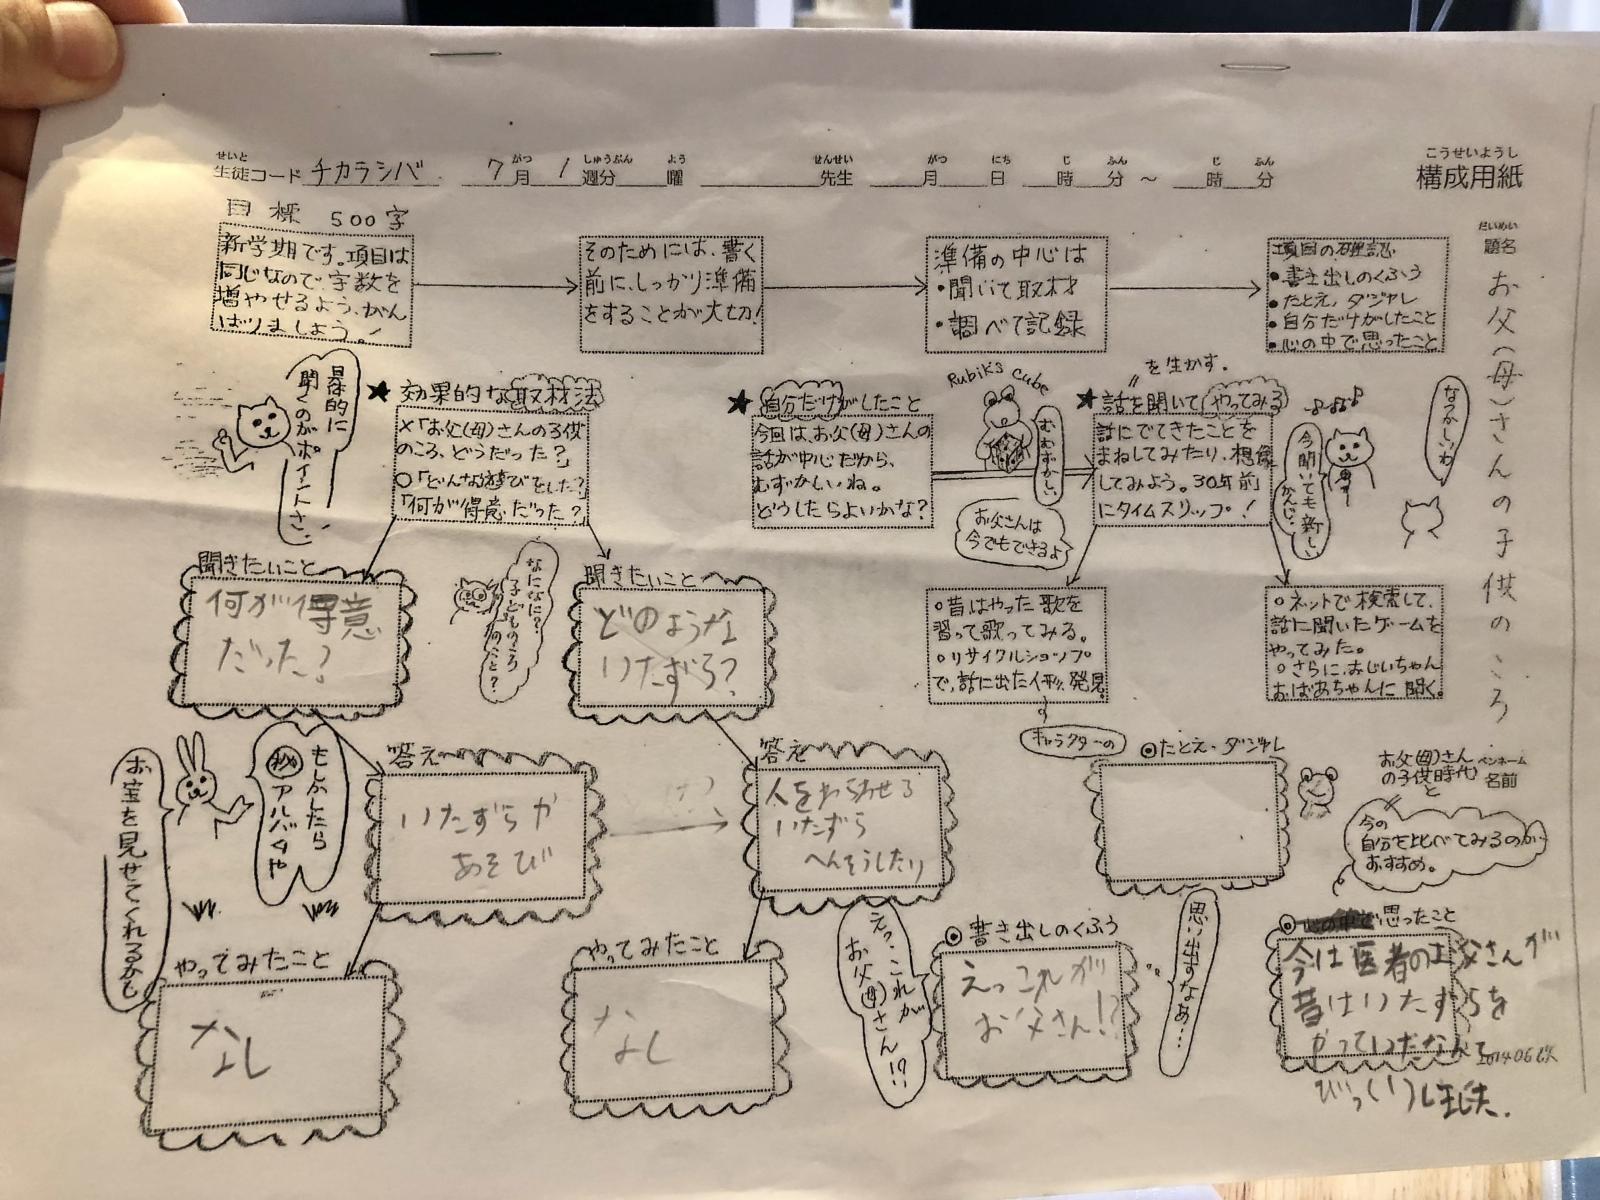 せいと
生徒コード チカラシバ 7月 1週分 曜 先生 月 日 時 分 〜 時 分
がつ しゅうぶん よう せんせい がつ にち じ ふん じ ふん
こうせいようし
構成用紙
目標 500字
新学期です。項目は
同じなので、字数を
増やせるよう、がん
ばりましょう!
そのためには、書く
前に、しっかり準備
をすることが大切!
準備の中心は
・聞いて取材
・調べて記録
項目の確認
・書き出しのくふう
・たとえ,ダジャレ
・自分だけがしたこと
・心の中で思ったこと
だいめい
題名
お父(母)さんの子供のころ
具体的に
聞くのがポイントさ。
★効果的な取材法
×「お父(母)さんの子供
のころ、どうだった?」
○「どんな遊びをした?」
「何が得意だった?」
★自分だけがしたこと
今回は、お父(母)さんの
話が中心だから、
むずかしいね。
どうしたらよいかな?
Rubik's Cube
むずかしい
お父さんは
今でもできるよ
を生かす。
★話を聞いてやってみる
話にでてきたことを
まねしてみたり、想像
してみよう。30年前
にタイムスリップ!
今聞いても新しい
かんじ。
なつかしいわ
聞きたいこと
何が得意
だった?
なになに?
子どものころ
のこと?
聞きたいこと
どのような
いたずら?
○昔はやった歌を
習って歌ってみる。
○リサイクルショップ
で、話に出た人形、発見。
キャラクターの
○ネットで検索して、
話に聞いたゲームを
やってみた。
○さらに、おじいちゃん
おばあちゃんに聞く。
もしかしたら
㊙アルバムや
お宝を見せてくれるかも
答え
いたずらや
あそび
答え
人をわらわせる
いたずら
へんそうしたり
◎たとえ・ダジャレ
お父(母)さん
の子供時代
と
今の
自分を比べてみるのが
おすすめ。
ペンネーム
名前
やってみたこと
なし
やってみたこと
なし
えっ、これが
お父(母)さん!?
◎書き出しのくふう
えっこれが
お父さん!?
思い出すなあ…
◎心の中で思ったこと
今は医者のお父さんが
昔はいたずらを
やっていたなんて
びっくりしました.
2014.06